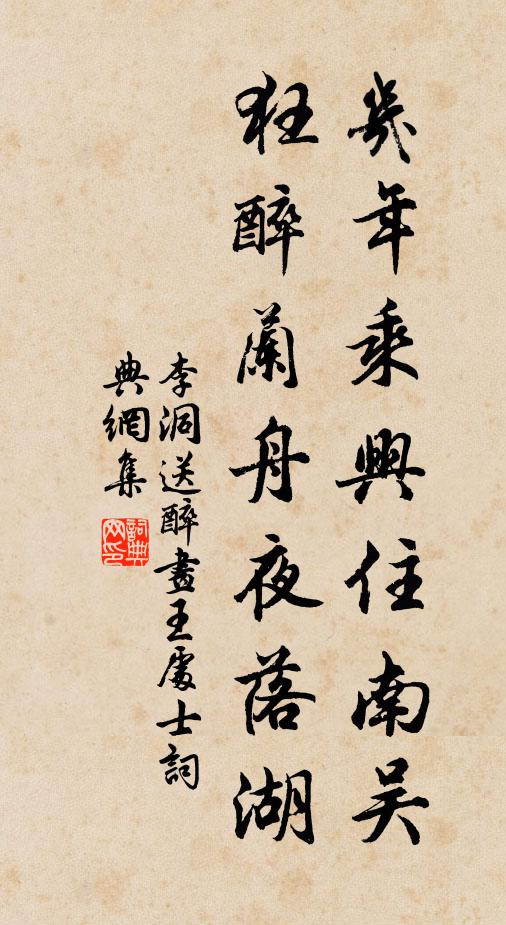 幾年乘興住南吳
狂醉蘭舟夜落湖
李洞送醉畫王處士詞
典網集
詞典
网印